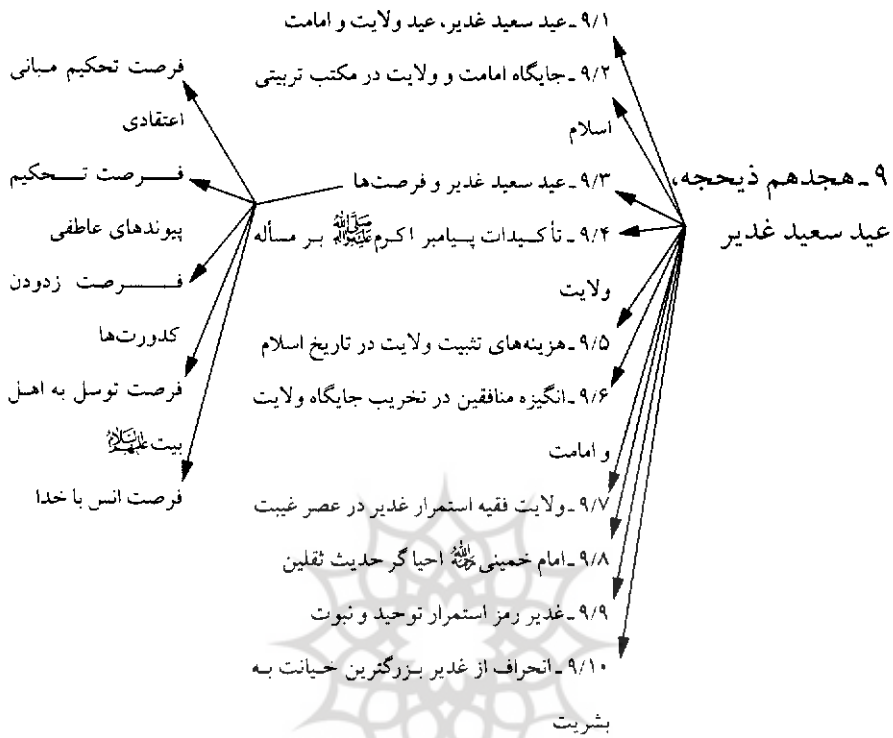 ۹ـ هجدهم ذیحجه،
عید سعید غدیر
۹/۱ـ عید سعید غدیر، عید ولایت و امامت
۹/۲ـ جایگاه امامت و ولایت در مکتب تربیتی
اسلام
۹/۳ـ عید سعید غدیر و فرصت‌ها
۹/۴ـ تأکیدات پیامبر اکرم ﷺ بر مسأله
ولایت
۹/۵ـ هزینه‌های تثبیت ولایت در تاریخ اسلام
۹/۶ـ انگیزه منافقین در تخریب جایگاه ولایت
و امامت
۹/۷ـ ولایت فقیه استمرار غدیر در عصر غیبت
۹/۸ـ امام خمینی ره احیاگر حدیث ثقلین
۹/۹ـ غدیر رمز استمرار توحید و نبوت
۹/۱۰ـ انحراف از غدیر بزرگترین خیانت به
بشریت
فرصت تحکیم مبانی
اعتقادی
فرصت تحکیم
پیوندهای عاطفی
فرصت زدودن
کدورت‌ها
فرصت توسل به اهل
بیت علیهم‌السلام
فرصت انس با خدا